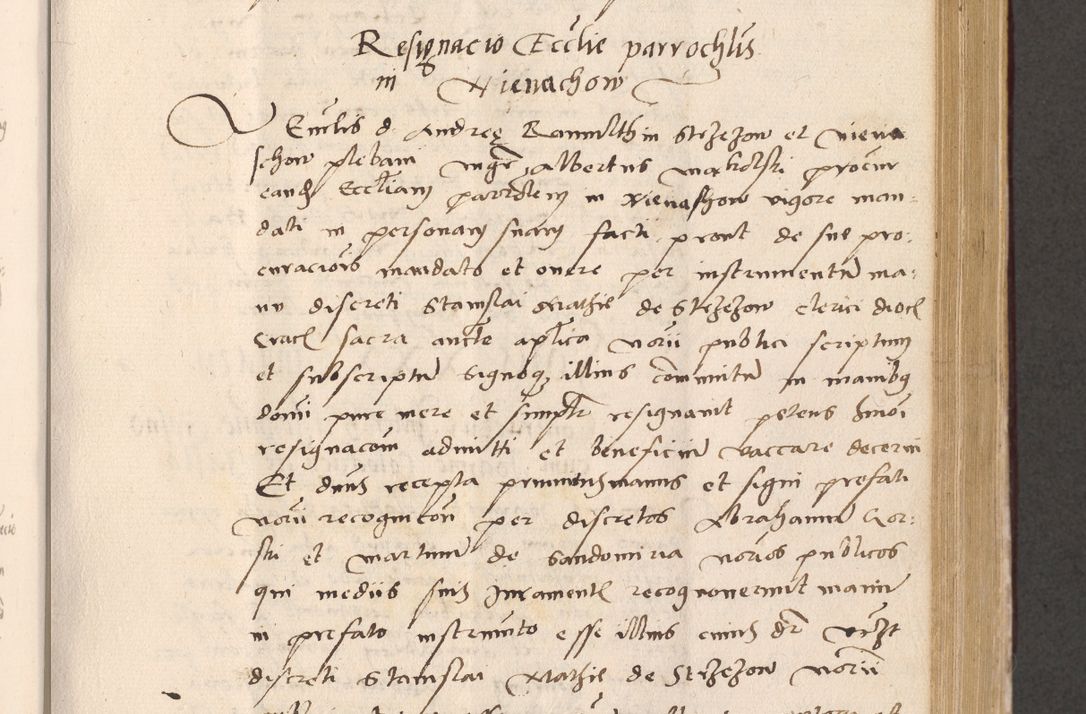 Resignacio Ecclie parrochlis
in Nienachow
Venlis d. Andreę Rannulth in Strzezow et niena
schow plebani mgr Albertus makolski procur
eand Eccliam parochlem in Nienashow vigore man-
dati in personam suam facti, pront de sue pro-
curacionis mandato et onere per instrumentu ma-
nu discreti Stanislai Mathie de Strzezow clerici dioc
Crac sacra aucte aplica norii publici scriptum
et subscriptu signoq illius comunitu in manibq
domi pure mere et simplr resignavit petens hmoi
resignacom admitti et beneficiu vaccare decerni
Et dnus recepta primitus manus et signi prefati
norii recognicon per discretos Abrahamu Gor-
ski et Martinu de Sandomiria norios publicos
qui mediis suis Juramentis recognoverunt manu
in prefato instrumto esse illius cuius dr videlzt
discreti Stanislai Mathie de Strzezow norii